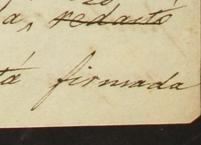 a, redactó
tá firmada